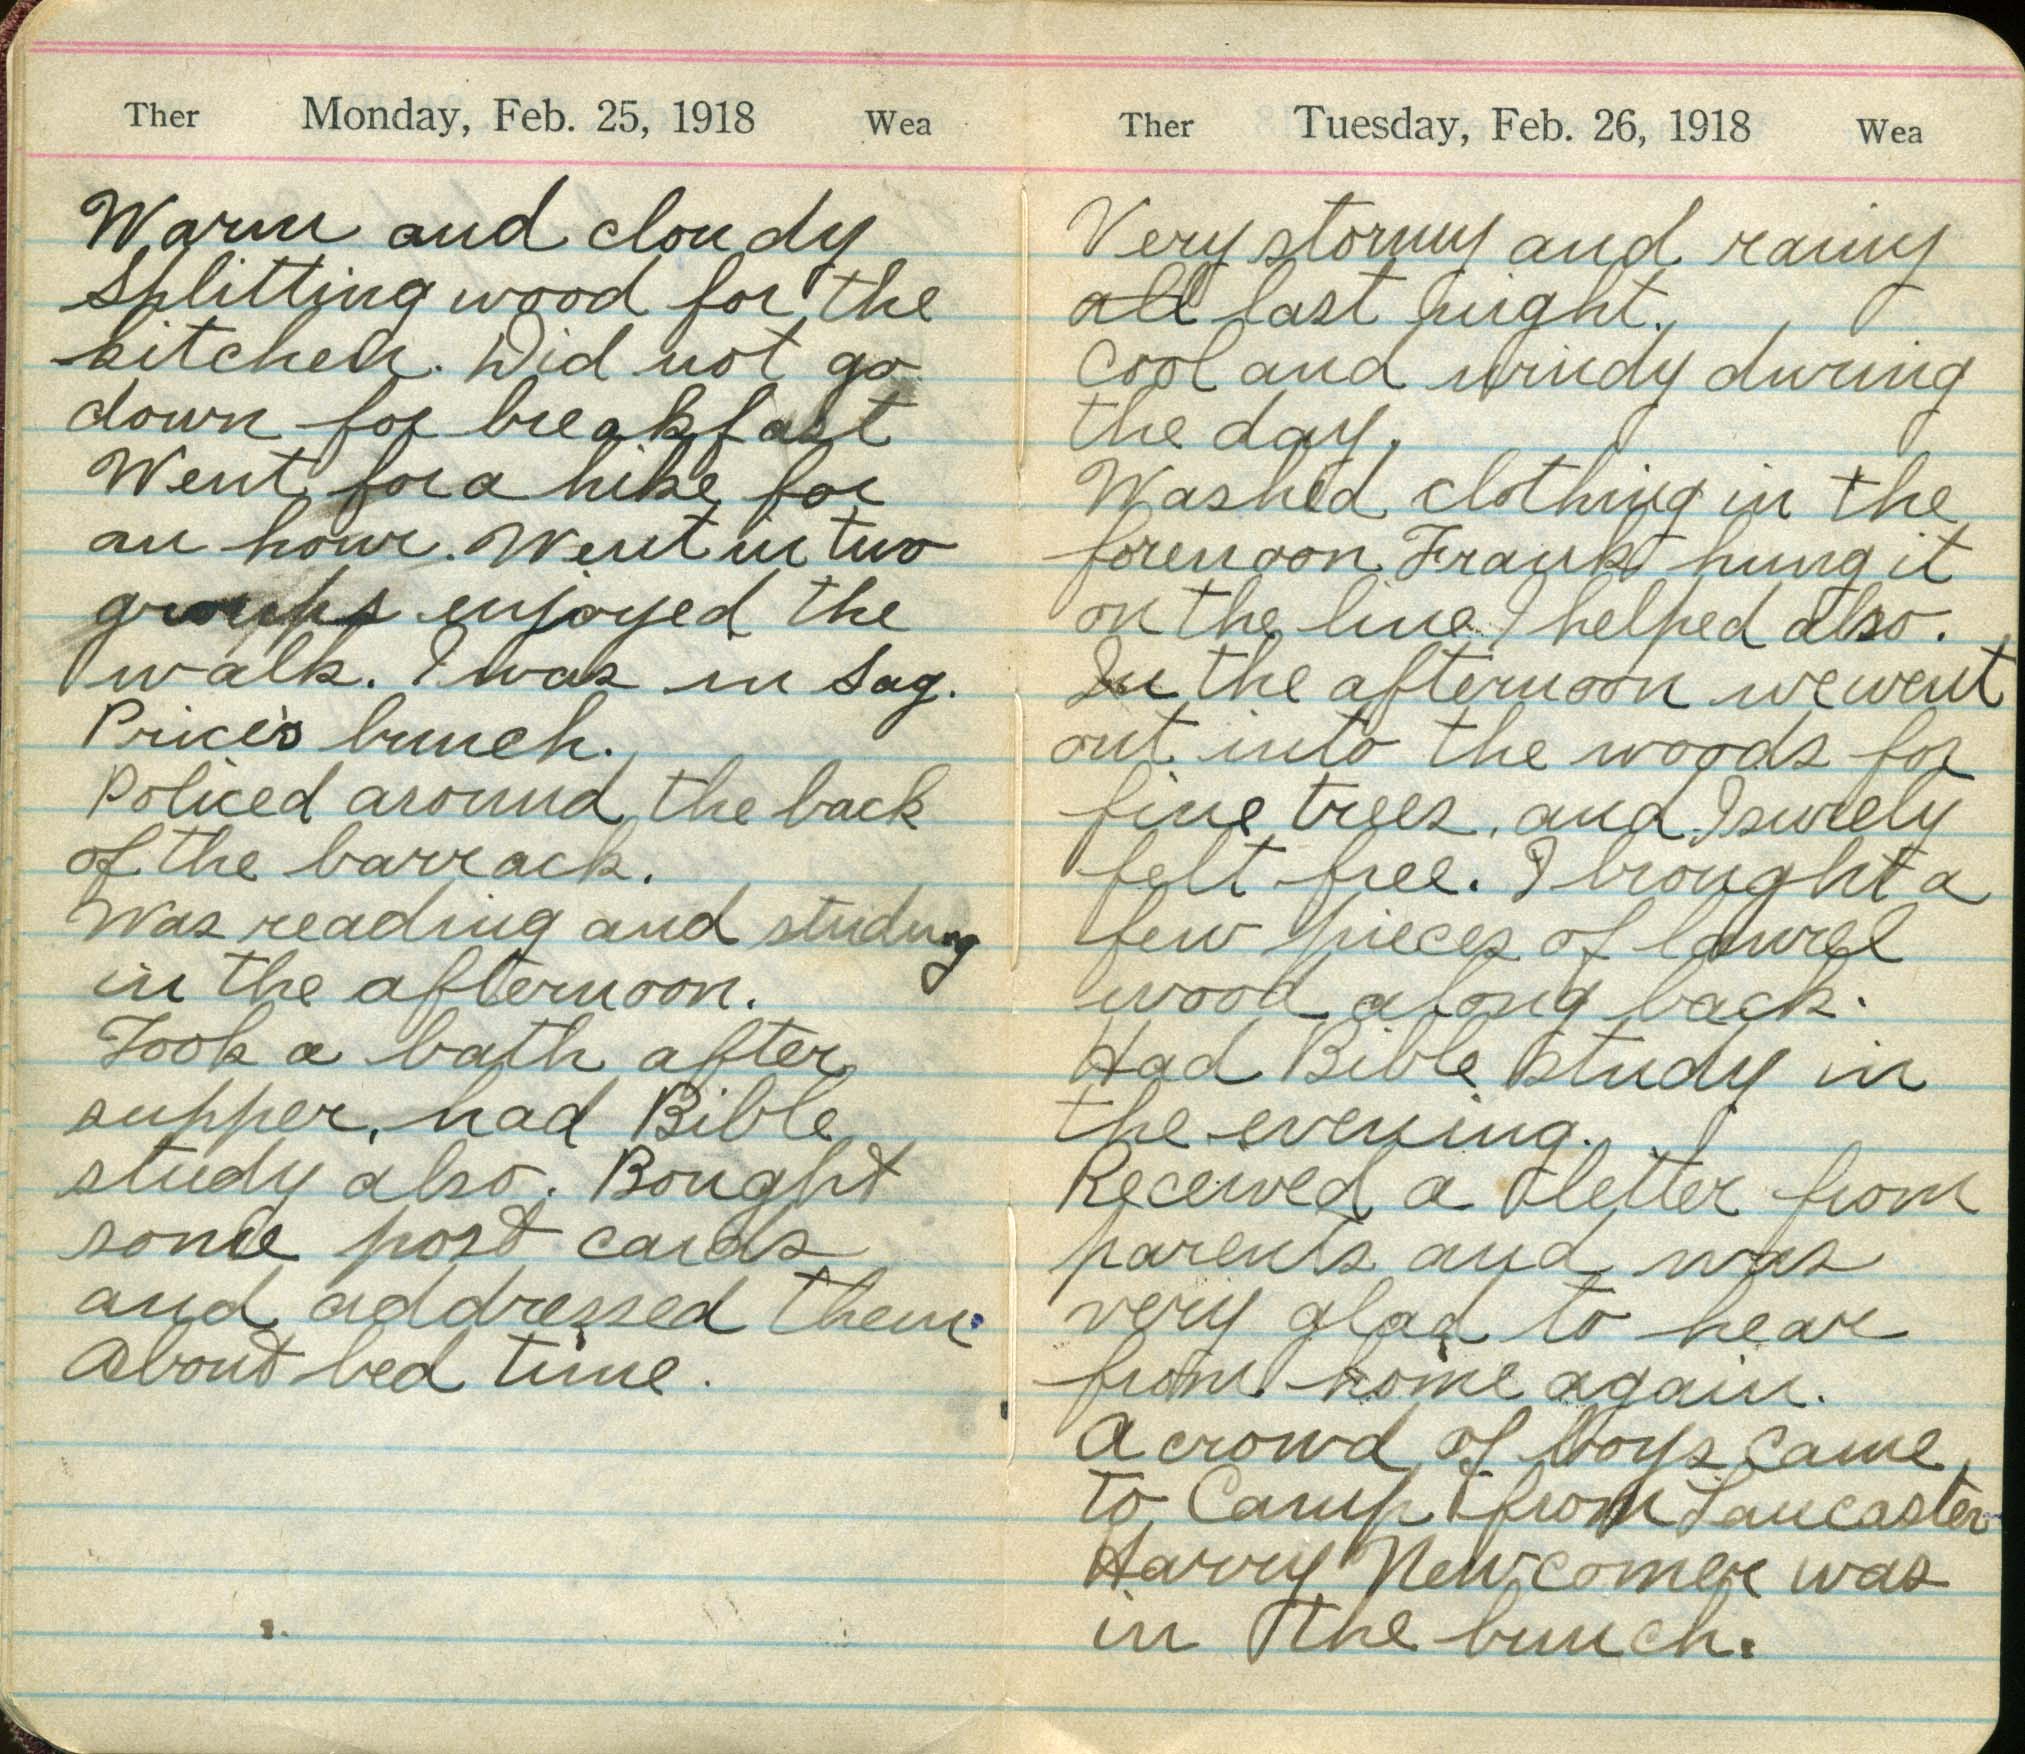 Ther Monday, Feb. 25, 1918 Wea
Warm and cloudy
Splitting wood for the
kitchen. Did not go
down for breakfast
Went for a hike for
an hour. Went in two
groups enjoyed the
walk. I was in Sag.
Price's bunch.
Policed around the back
of the barrack.
Was reading and studing
in the afternoon.
Took a bath after
supper, had Bible
study also. Bought
some post cards
and addressed them.
About bed time.
Ther Tuesday, Feb. 26, 1918 Wea
Very stormy and rainy
all last night.
Cool and windy during
the day.
Washed clothing in the
forenoon Frank hung it
on the line I helped also.
In the afternoon we went
out into the woods for
fine trees, and I surely
felt free. I brought a
few pieces of laurel
wood along back.
Had Bible study in
the evening.
Received a letter from
parents and was
very glad to hear
from home again.
A crowd of boys came
to Camp from Lancaster
Harry Newcomer was
in the bunch.